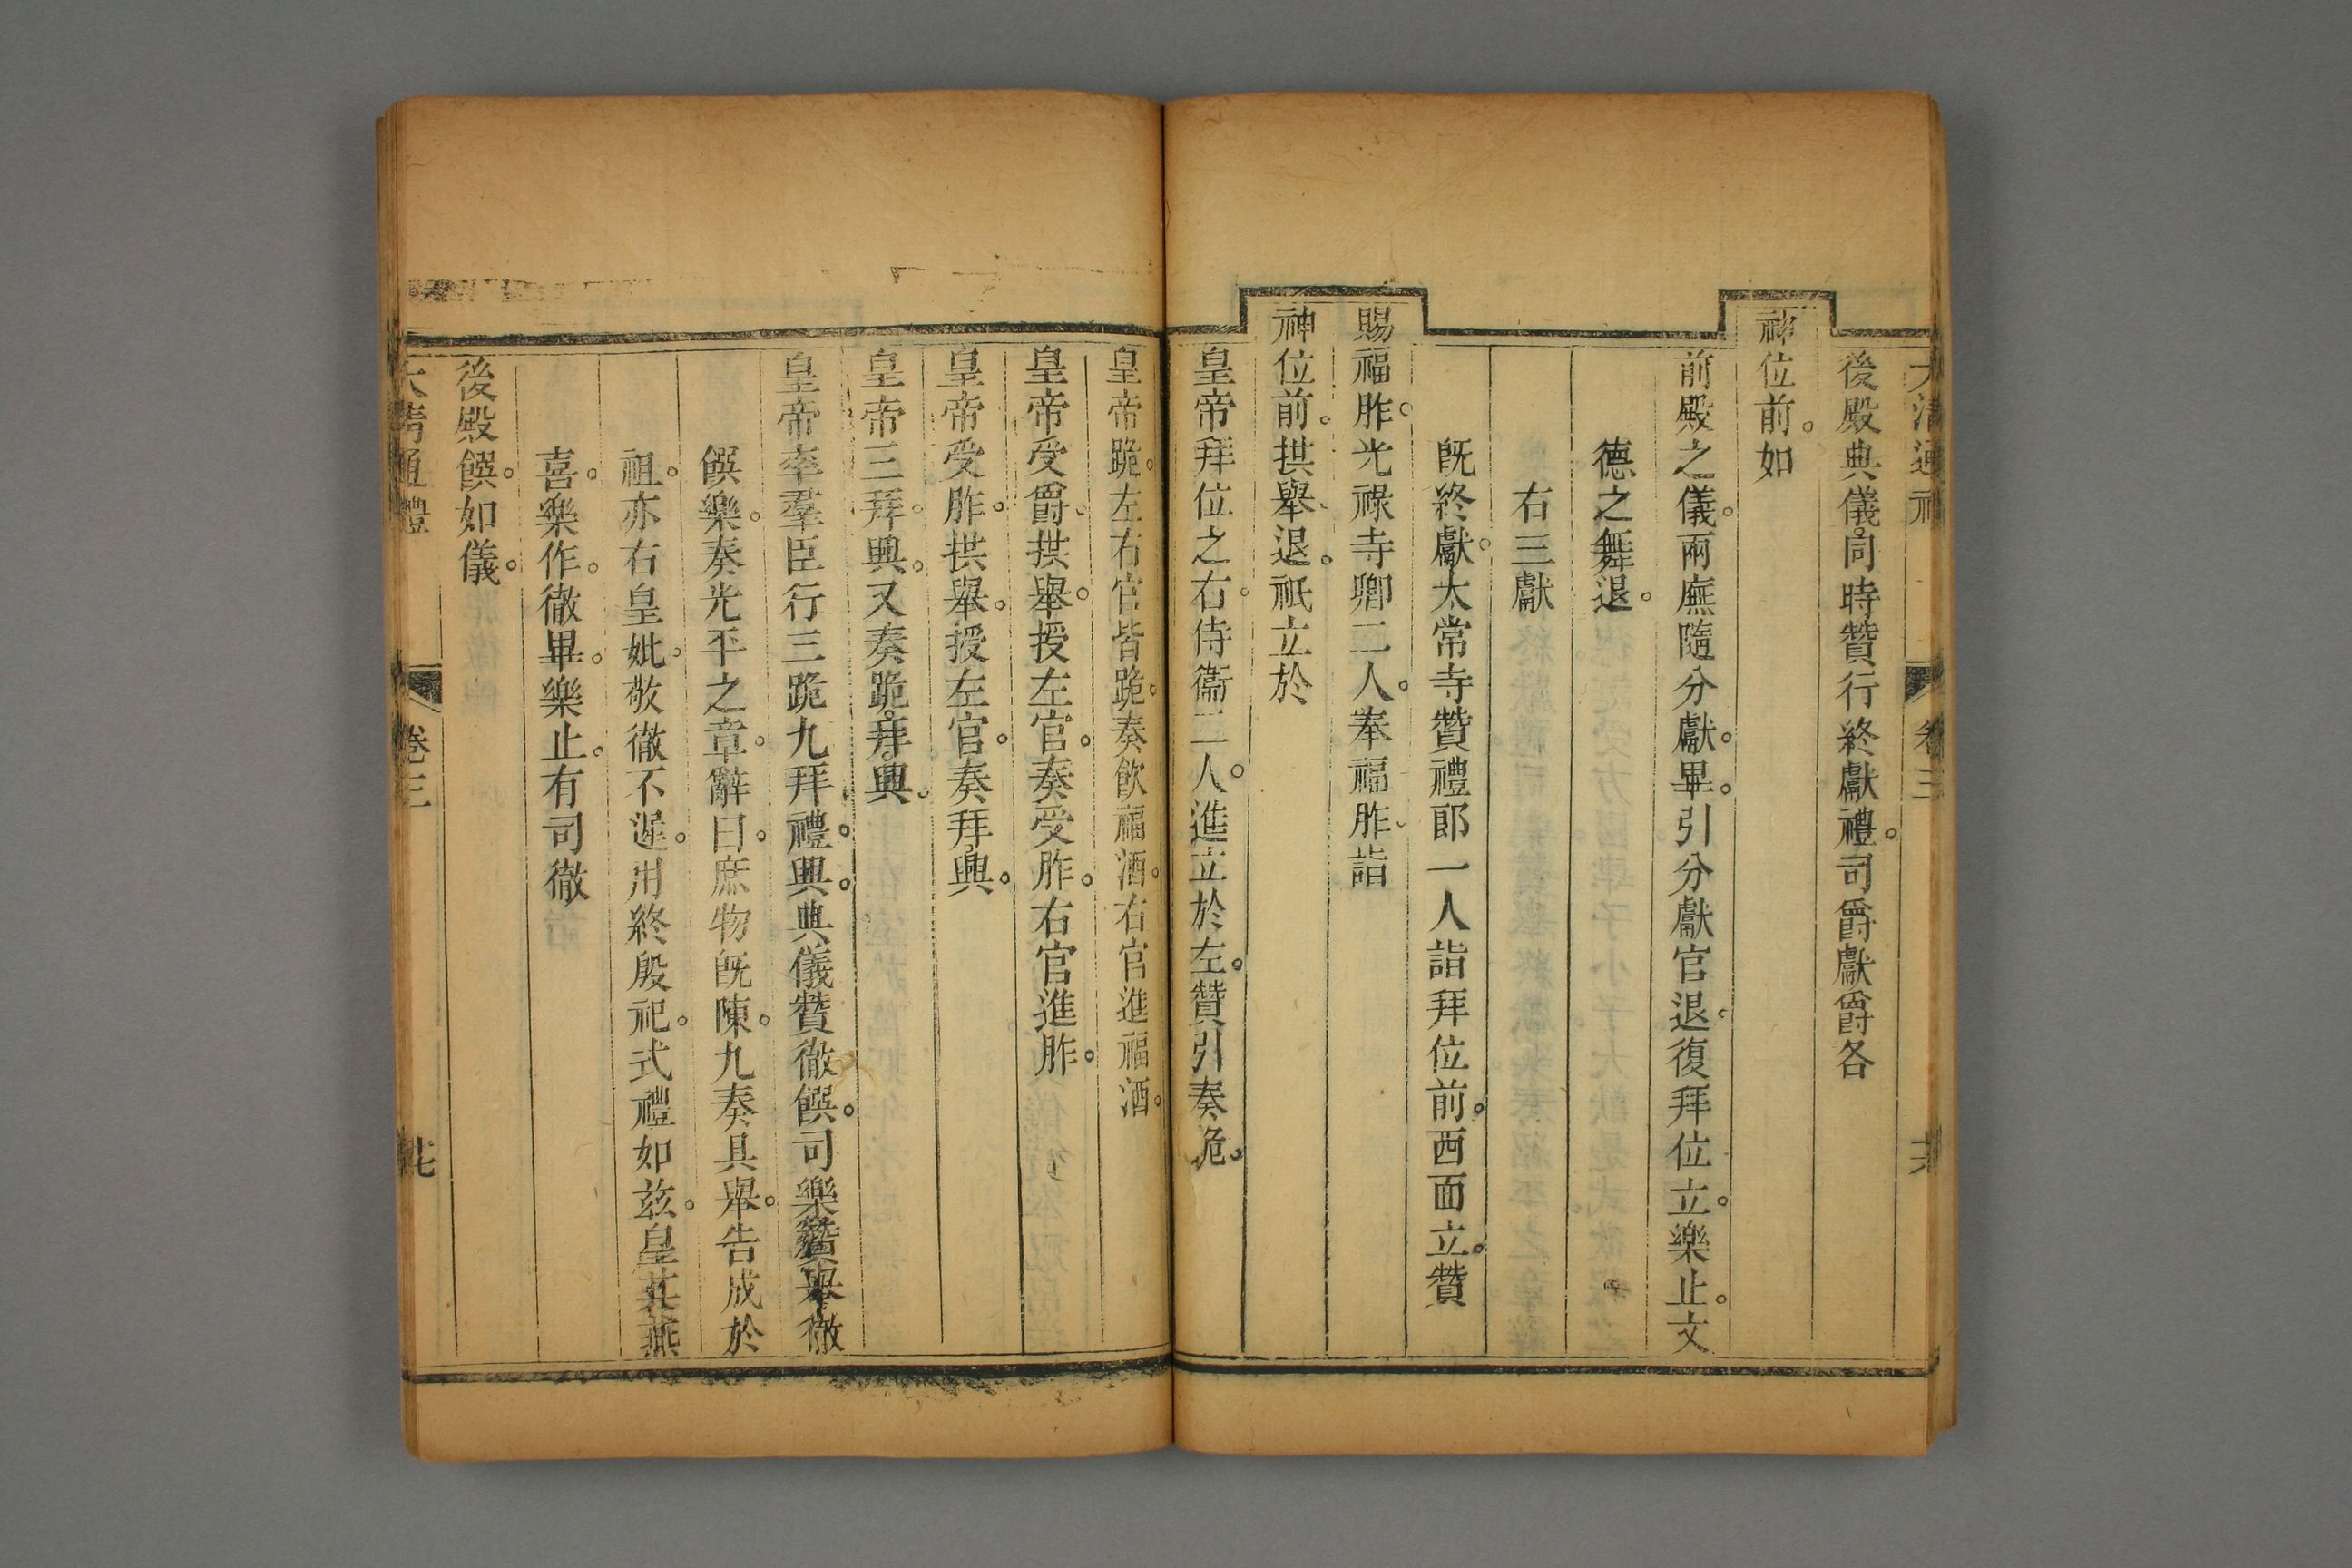 大清通禮 卷三
後殿典儀。同時贊行終獻禮。司爵獻爵各
神位前。如
前殿之儀。兩廡隨分獻。畢。引分獻官退。復拜位立。樂止。文
德之舞退。
右三獻
既終獻。太常寺贊禮郎一人詣拜位前。西面立。贊
賜福胙。光祿寺卿二人。奉福胙。詣
神位前。拱舉。退。祇立於
皇帝拜位之右。侍衞二人。進立於左。贊引奏跪。
皇帝跪。左右官皆跪。奏飲福酒。右官進福酒。
皇帝受爵。拱舉。授左官。奏受胙。右官進胙。
皇帝受胙。拱舉。授左官。奏拜。興。
皇帝三拜。興。又奏跪。拜。興。
皇帝率羣臣行三跪九拜禮。興。典儀贊徹饌。司樂贊舉徹
饌樂。奏光平之章。辭曰。庶物既陳。九奏具舉。告成於
祖。亦右皇妣。敬徹不遲。用終殷祀。式禮如茲。皇其燕
喜。樂作。徹畢。樂止。有司徹
後殿饌。如儀。
大清通禮 卷三 廿七